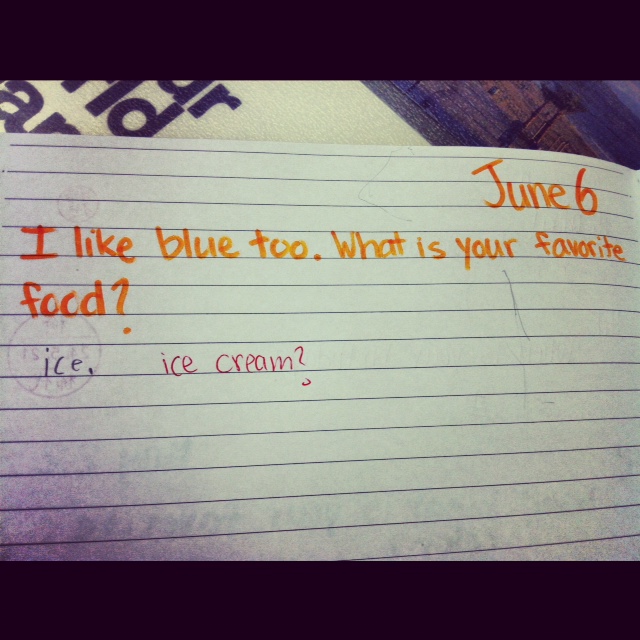 June 6
I like blue too. What is your favorite
food?
ice. ice cream?